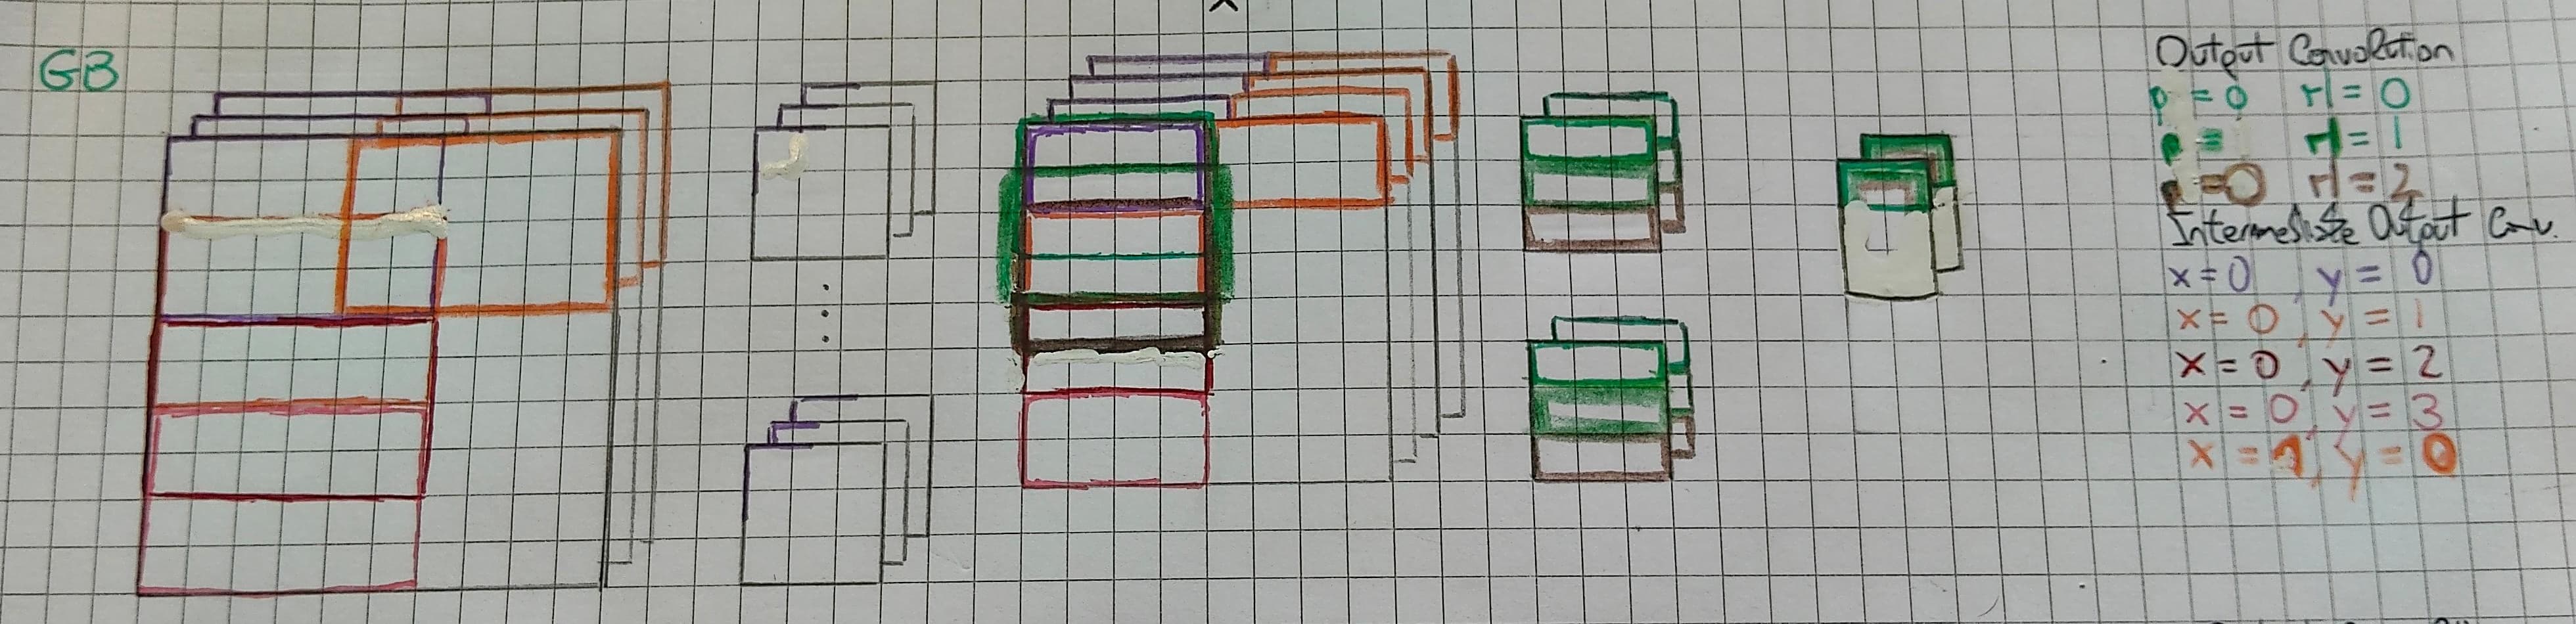 GB
Output Convolution
p = 0 rl = 0
p = rl = 1
p = 0 rl = 2
Intermediate Output Conv.
x = 0, y = 0
x = 0, y = 1
x = 0, y = 2
x = 0, y = 3
x = 1, y = 0